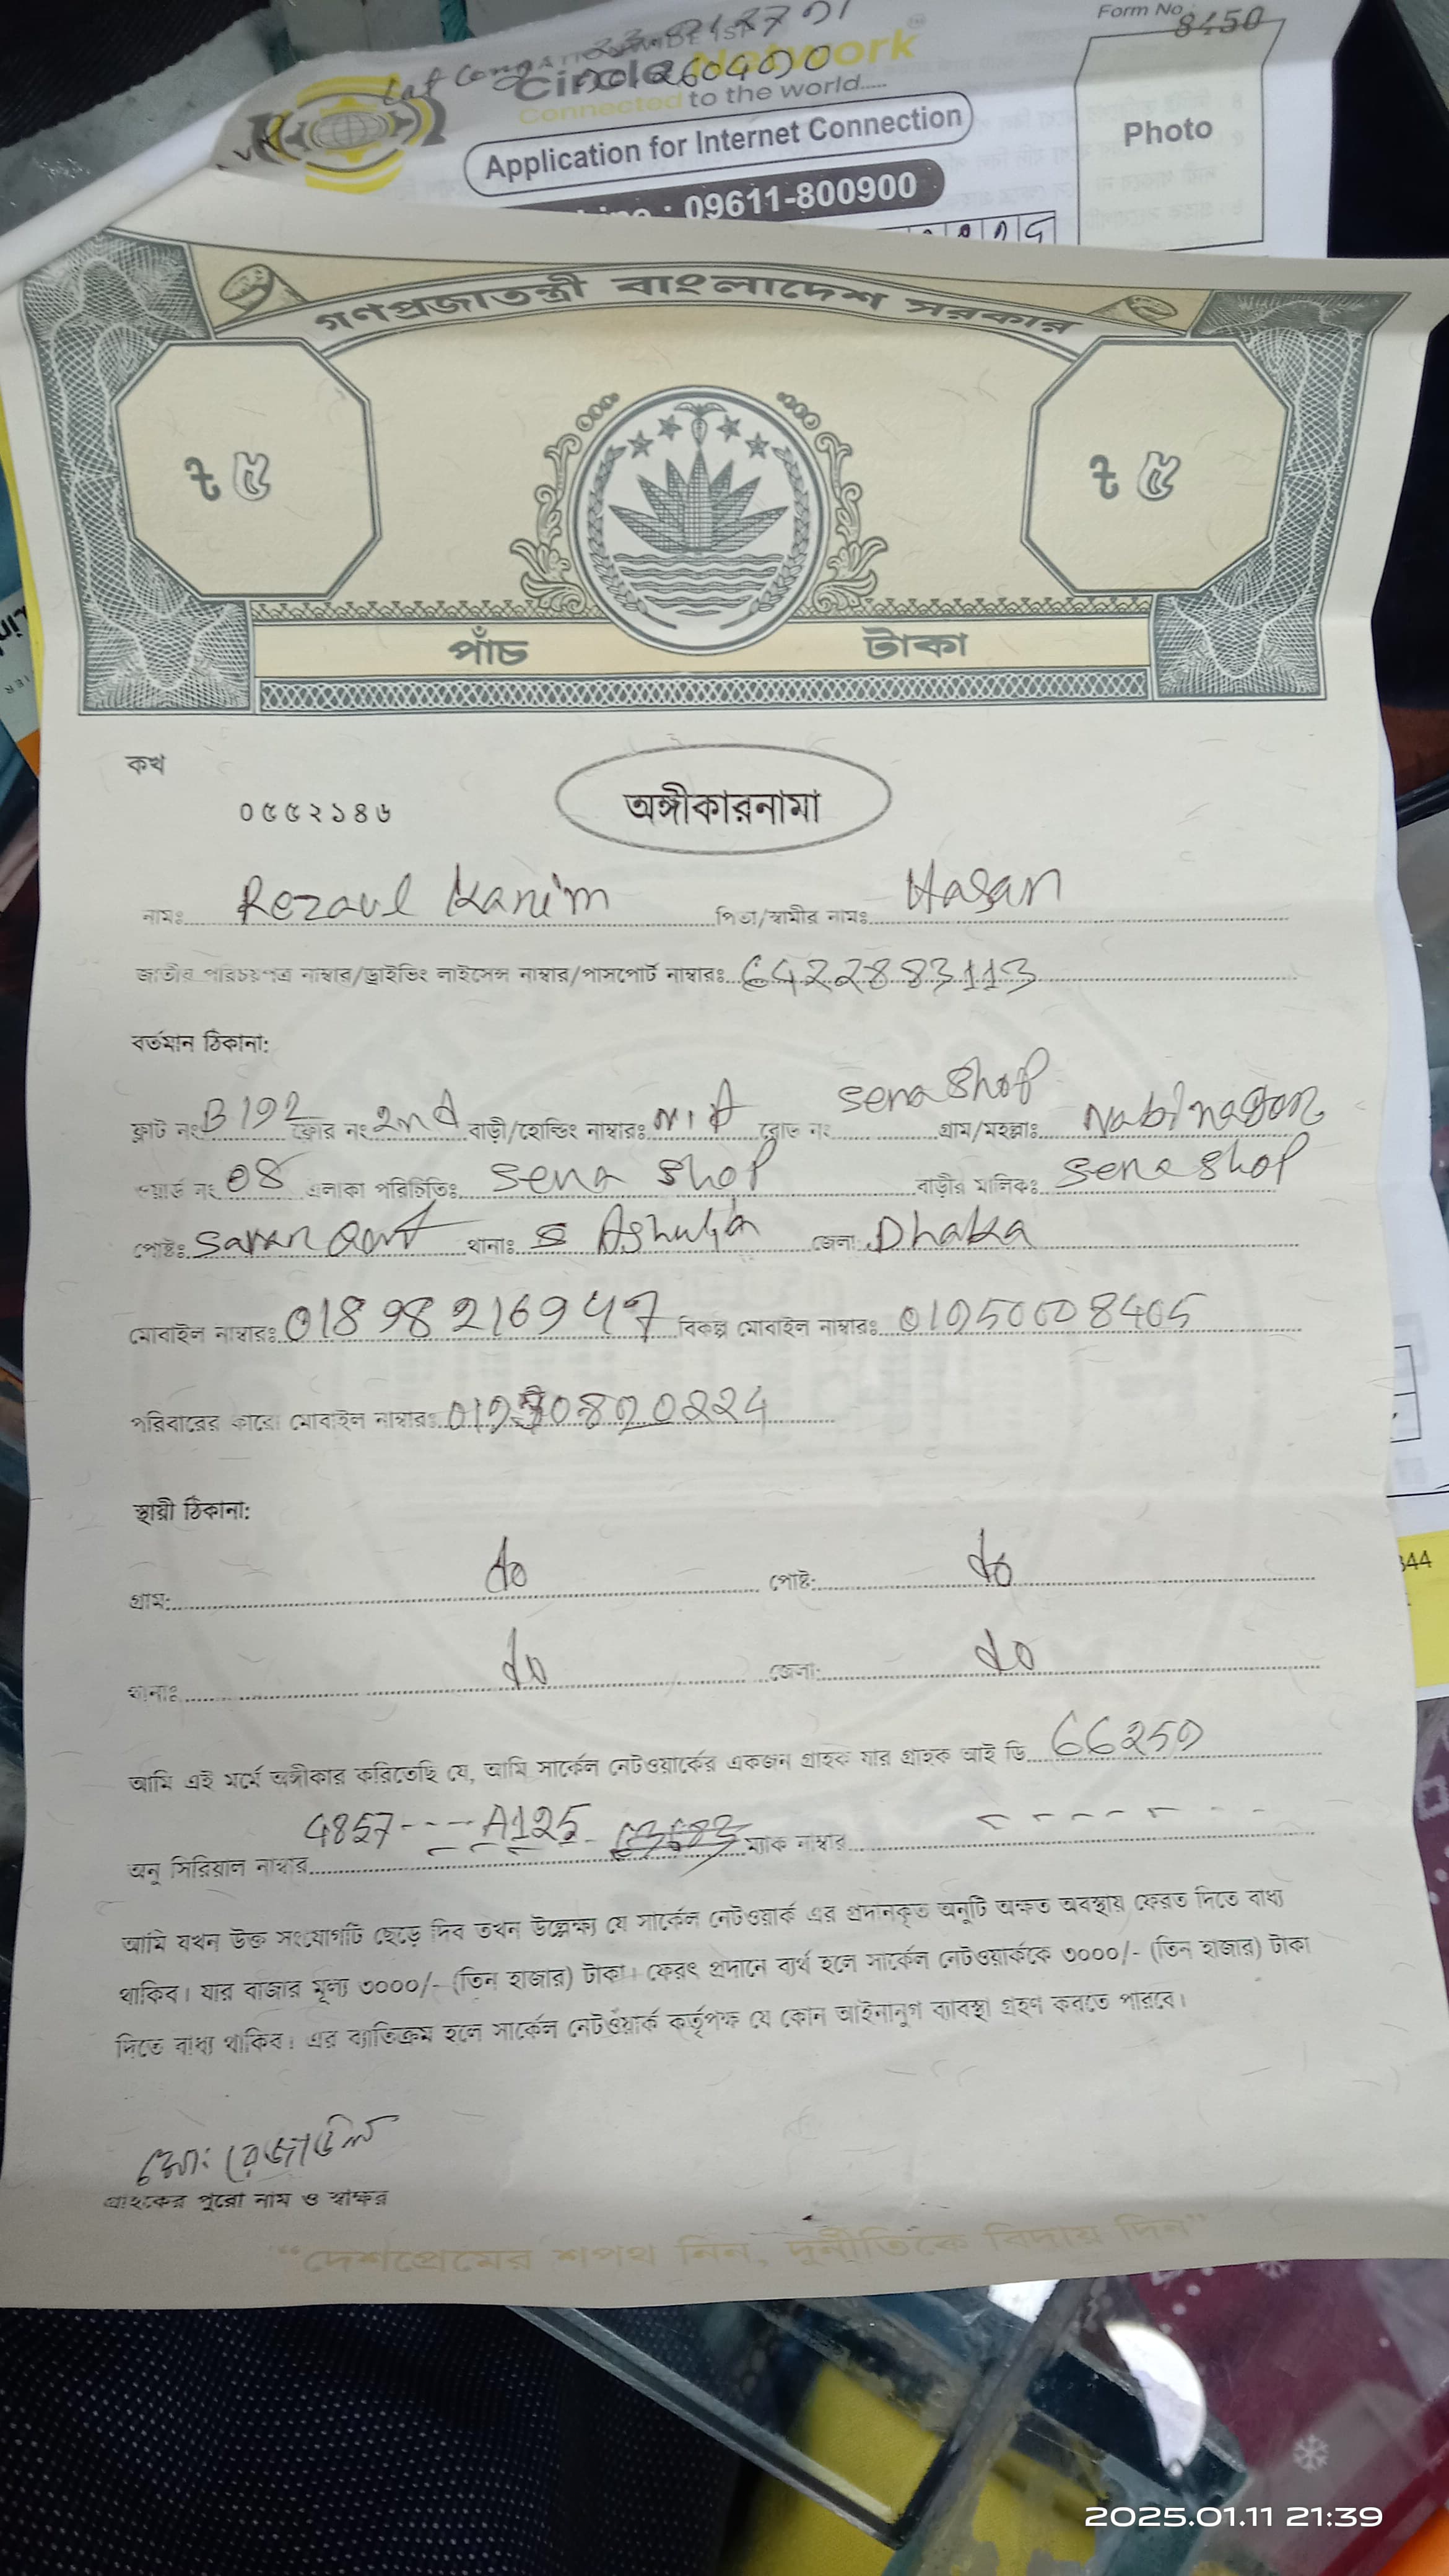 Form No : 8450
Circle Network
Connected to the world.....
Application for Internet Connection
Photo
: 09611-800900
গণপ্রজাতন্ত্রী বাংলাদেশ সরকার
৳ ৫ ৳ ৫
পাঁচ টাকা
কখ
০৫৫২১৪৬
অঙ্গীকারনামা
নামঃ Rezaul Karim পিতা/স্বামীর নামঃ Hasan
জাতীয় পরিচয়পত্র নাম্বার/ড্রাইভিং লাইসেন্স নাম্বার/পাসপোর্ট নাম্বারঃ 6422883113
বর্তমান ঠিকানা:
ফ্লাট নং B192 ফ্লোর নং 2nd বাড়ী/হোল্ডিং নাম্বারঃ N/A রোড নং sena shop গ্রাম/মহল্লাঃ Nabinagar
ওয়ার্ড নং 08 এলাকা পরিচিতিঃ sena shop বাড়ীর মালিকঃ sena shop
পোষ্টঃ থানাঃ Ashulia জেলা: Dhaka
মোবাইল নাম্বারঃ 01898216947 বিকল্প মোবাইল নাম্বারঃ
পরিবারের কারো মোবাইল নাম্বারঃ
স্থায়ী ঠিকানা:
গ্রাম: do পোষ্ট: do
থানাঃ do জেলা: do
আমি এই মর্মে অঙ্গীকার করিতেছি যে, আমি সার্কেল নেটওয়ার্কের একজন গ্রাহক যার গ্রাহক আই ডি 66259
অনু সিরিয়াল নাম্বার 4857---- A125 ম্যাক নাম্বার
আমি যখন উক্ত সংযোগটি ছেড়ে দিব তখন উল্লেক্ষ্য যে সার্কেল নেটওয়ার্ক এর প্রদানকৃত অনুটি অক্ষত অবস্থায় ফেরত দিতে বাধ্য
থাকিব। যার বাজার মূল্য ৩০০০/- (তিন হাজার) টাকা। ফেরৎ প্রদানে ব্যর্থ হলে সার্কেল নেটওয়ার্ককে ৩০০০/- (তিন হাজার) টাকা
দিতে বাধ্য থাকিব। এর ব্যাতিক্রম হলে সার্কেল নেটওঁয়ার্ক কর্তৃপক্ষ যে কোন আইনানুগ ব্যাবস্থা গ্রহণ করতে পারবে।
মোঃ রেজাউল
গ্রাহকের পুরো নাম ও স্বাক্ষর
“দেশপ্রেমের শপথ নিন, দুর্নীতিকে বিদায় দিন”
344
2025.01.11 21:39